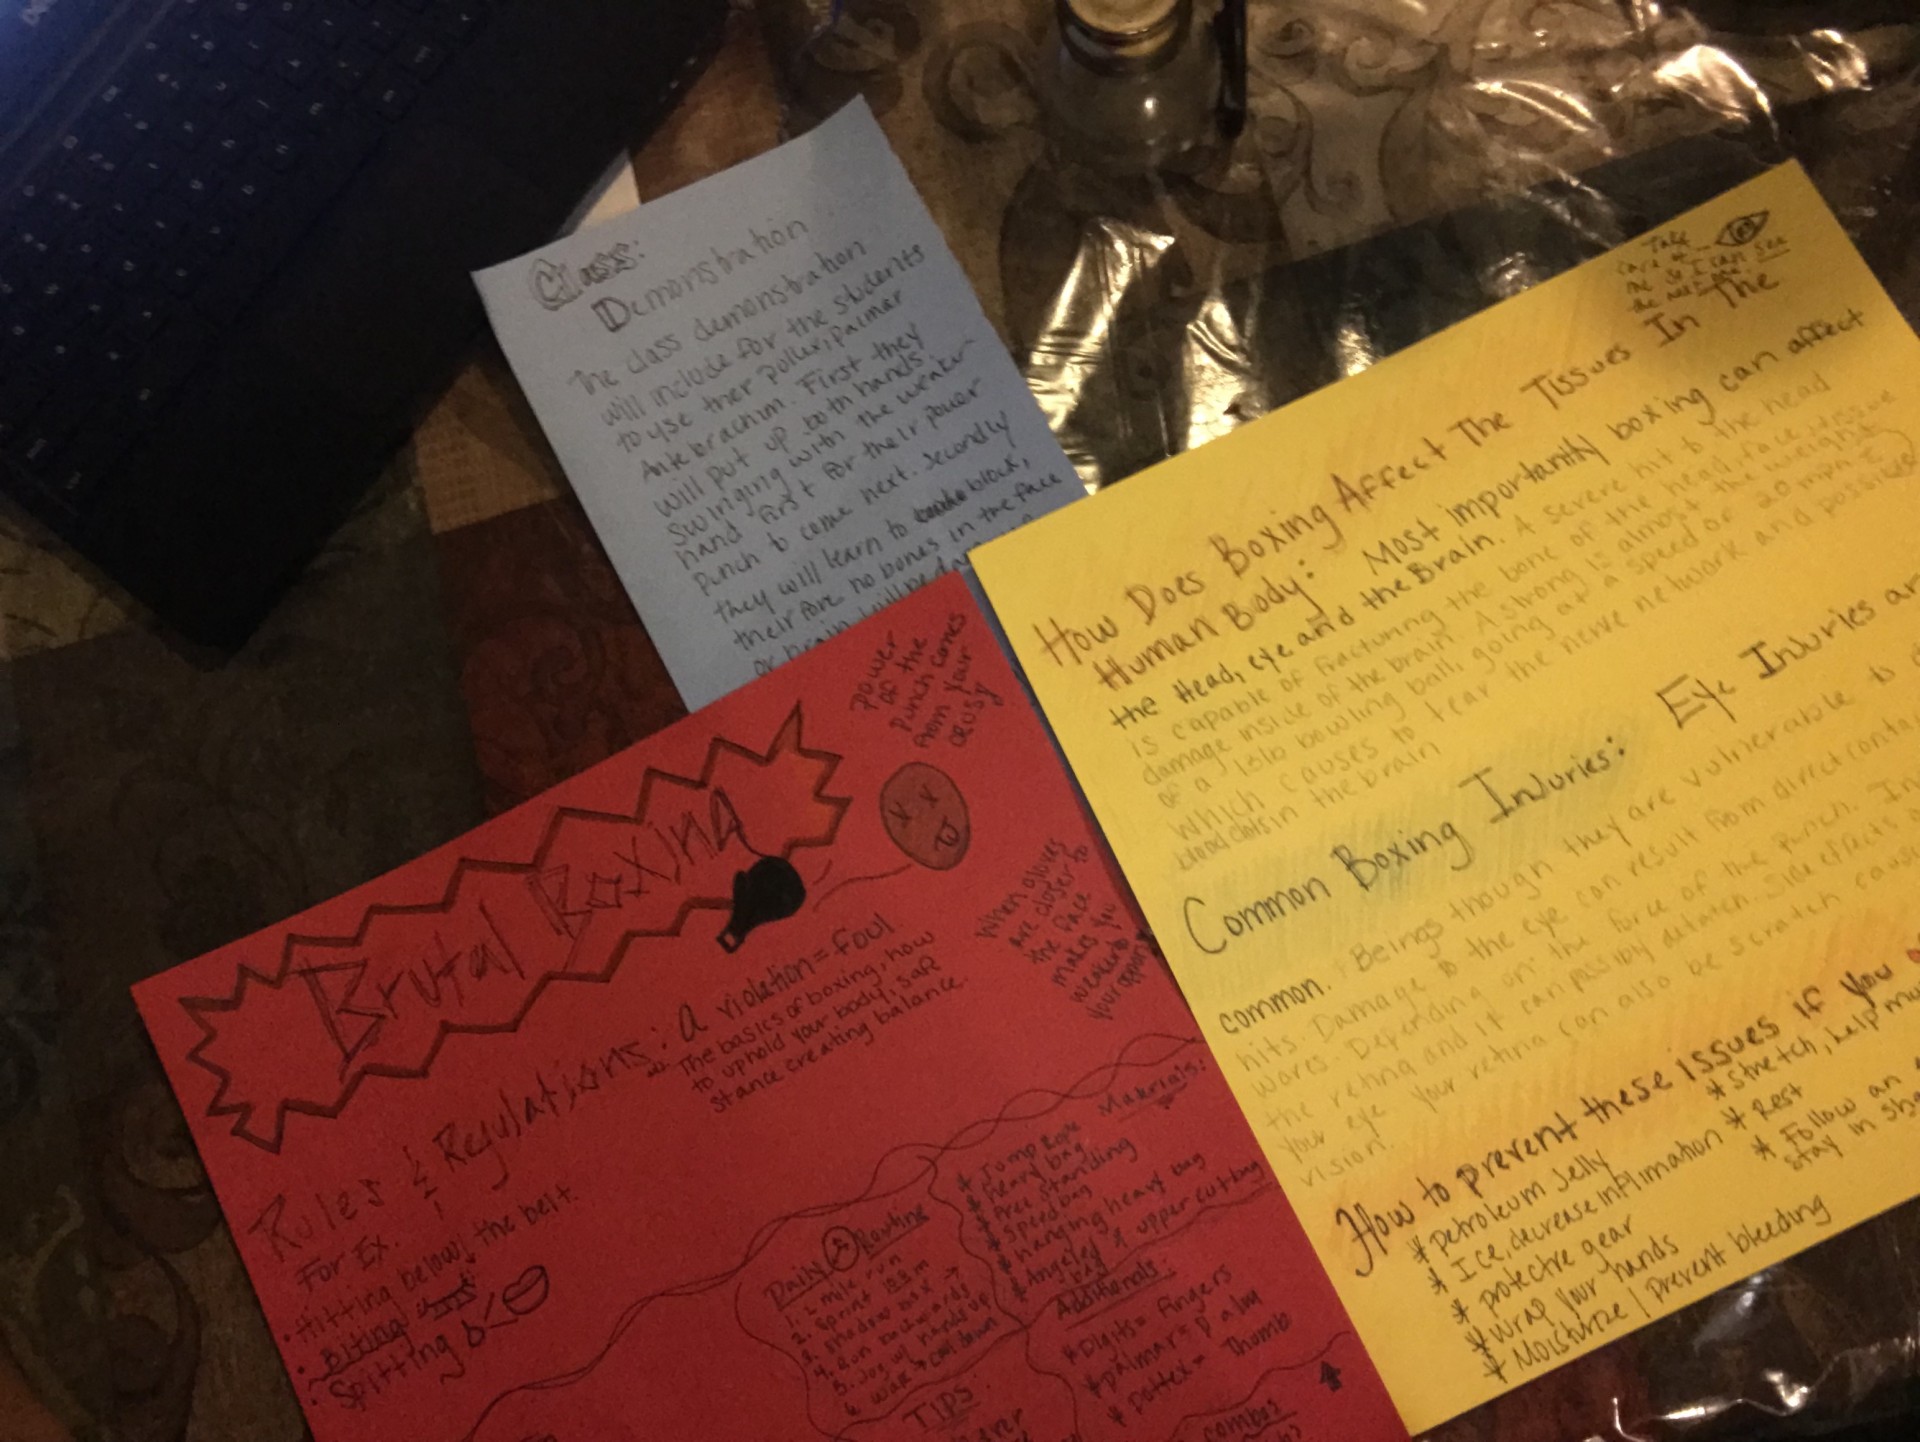 Class:
Demonstration
The class demonstration
will include for the students
to use their pollex, palmar
Antebrachim. First they
will put up both hands.
Swinging with the weaker
hand first for their power
punch to come next. Secondly
they will learn to block,
their fore no bones in the face
or brain will be
Take
care of
me so I can see
the next
How Does Boxing Affect The Tissues In The
Human Body: Most importantly boxing can affect
the Head, eye and the Brain. A severe hit to the head
is capable of fracturing the bone of the head, face, tissue
damage inside of the brain. A strong is almost the weight
of a 13lb bowling ball, going at a speed of 20 mph
which causes to tear the nerve network and possible
blood clots in the brain
Common Boxing Injuries: Eye Injuries are
common. Beings though they are vulnerable to
hits. Damage to the eye can result from direct contact
Depending on the force of the punch.
the retina and it can possibly detatch. Side effects
your eye. Your retina can also be scratch
vision.
How to prevent these issues if you
* petroleum Jelly
* Ice, decrease inflimation
* protective gear
* Wrap your hands
* Moisturize / prevent bleeding
* Stretch, help
* Rest
* Follow an
stay in
power
of the
punch comes
from your
Brutal Boxing
When gloves
are closer to
the face
makes you
weaker to
your
Rules & Regulations: a violation = foul
The basics of boxing, how
to uphold your body, safe
stance creating balance.
For Ex.
• Hitting below the belt.
• Biting
Spitting
Daily Routine
1. mile run
2. Sprint
3. shadow box
4. Run backwards
5. Jog w/ hands up
6. walk → cool down
Materials:
* Jump Rope
* heavy bag
* Free Standing
* Speed bag
* hanging heavy bag
* Angeled & upper cutting
bag
Additionals:
* Digits = fingers
* palmar = palm
* pollex = Thumb
TIPS:
combos